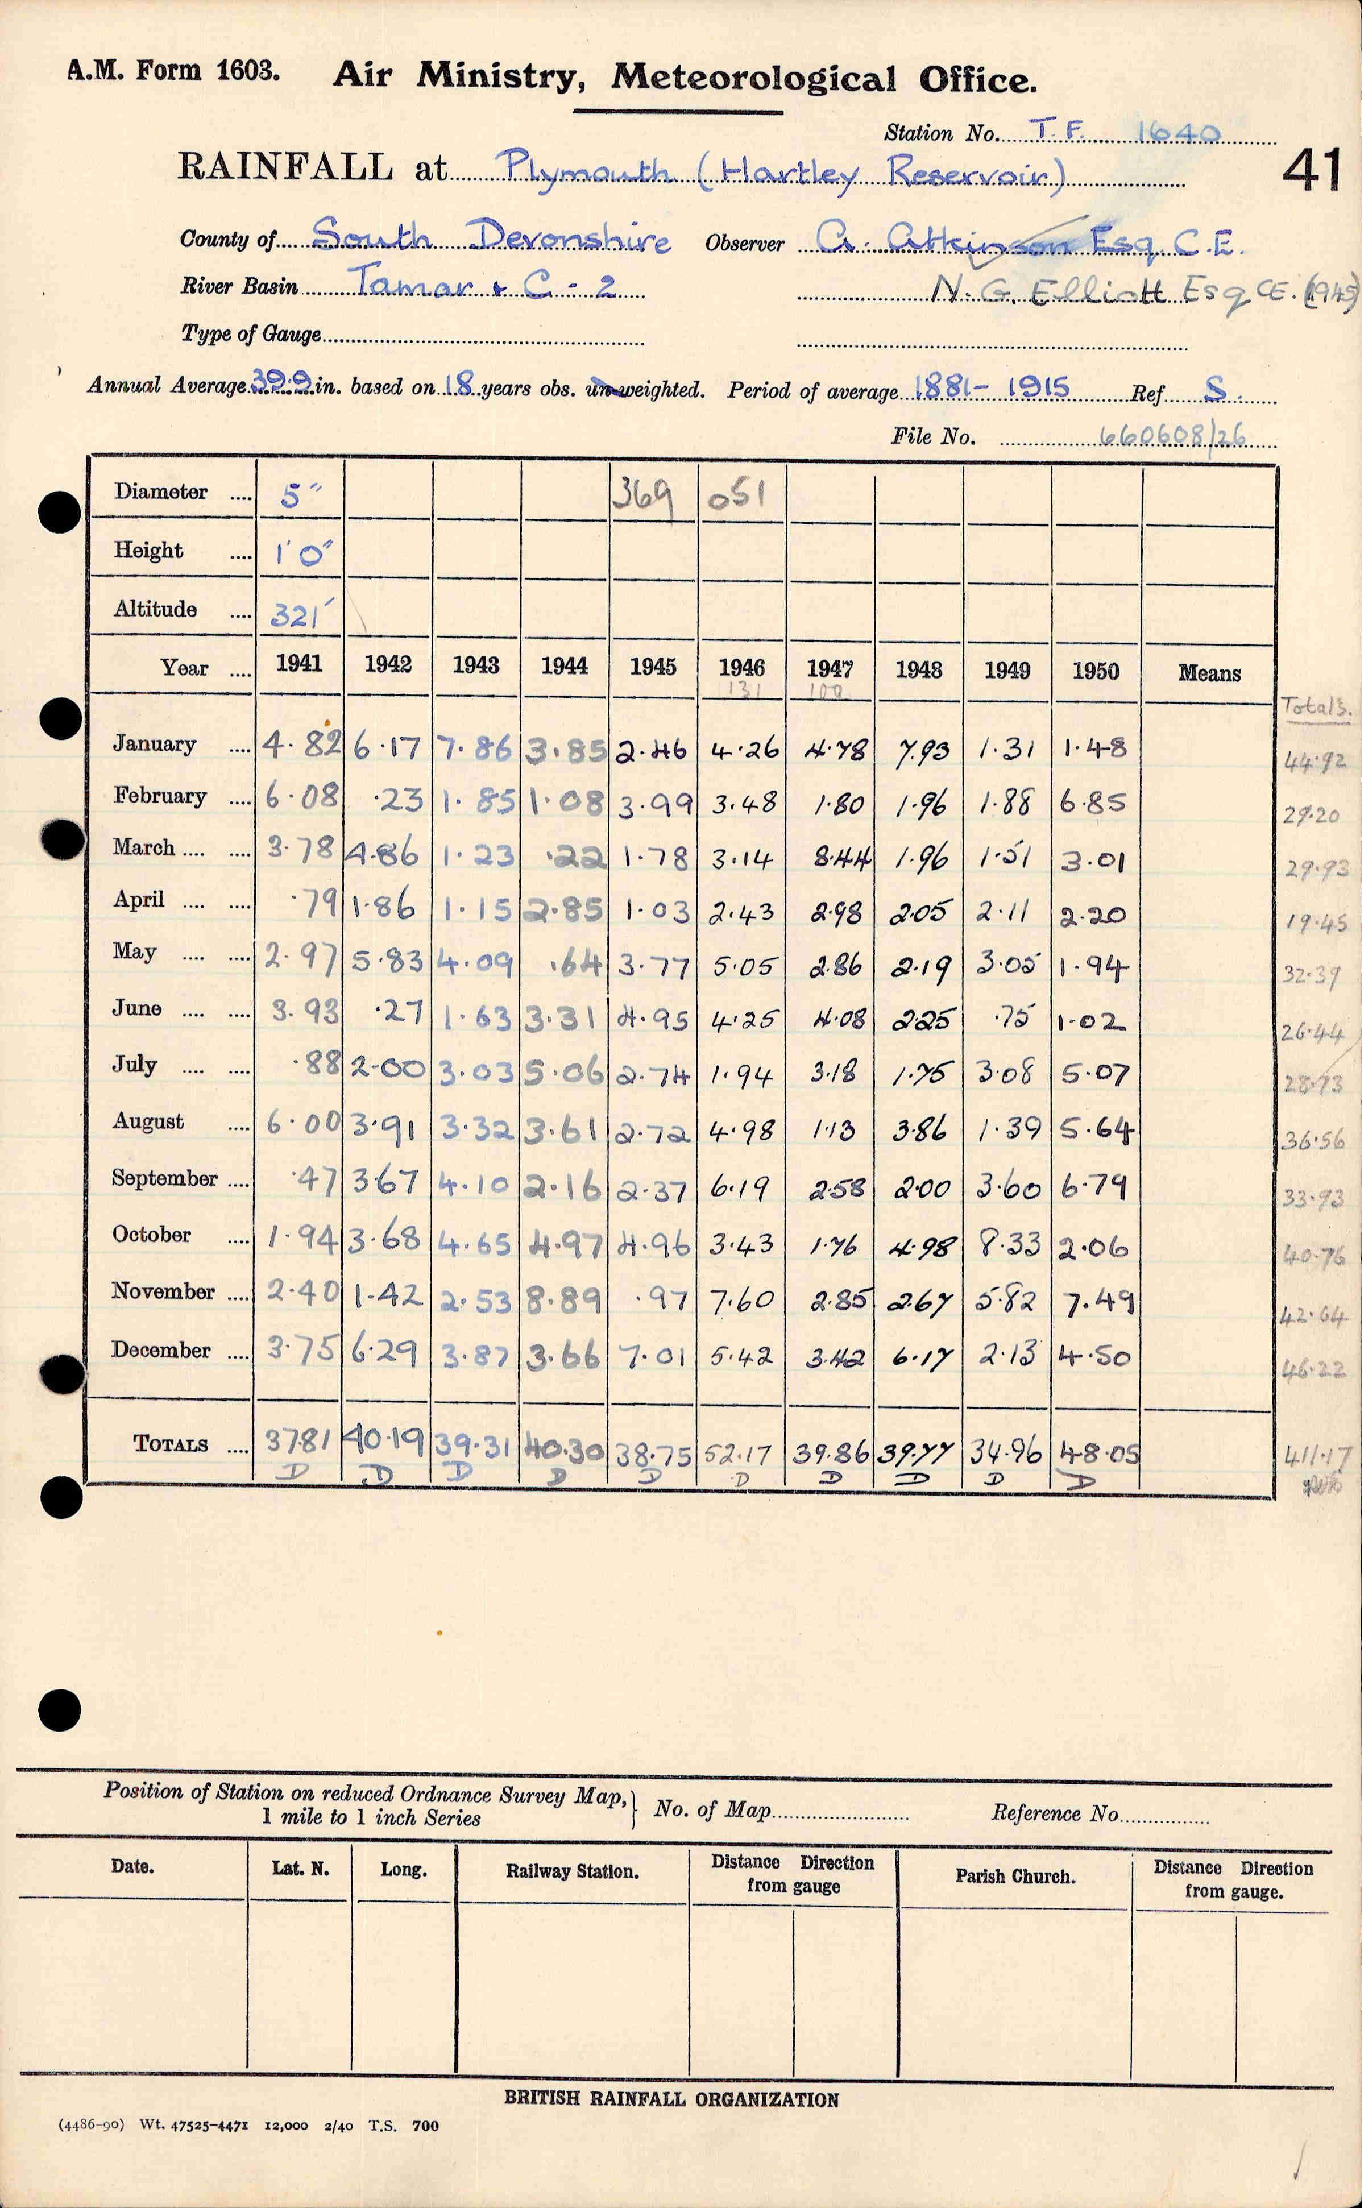 A.M. Form 1603. Air Ministry, Meteorological Office.
Station No. T.F. 1640
RAINFALL at Plymouth (Hartley Reservoir) 41
County of South Devonshire Observer A. Atkinson Esq. C.E.
River Basin Tamar & C - 2 N. G. Elliott Esq CE. (1945)
Type of Gauge
Annual Average 39.9 in. based on 18 years obs. un-weighted. Period of average 1881 - 1915 Ref S.
File No. 660608/26
Diameter .... 5" 369 051
Height .... 1' 0"
Altitude .... 321'
Year .... 1941 1942 1943 1944 1945 1946 1947 1948 1949 1950 Means
131 102
Totals.
January .... 4.82 6.17 7.86 3.85 2.46 4.26 4.78 7.93 1.31 1.48 44.92
February .... 6.08 .23 1.85 1.08 3.99 3.48 1.80 1.96 1.88 6.85 29.20
March .... .... 3.78 4.86 1.23 .22 1.78 3.14 8.44 1.96 1.51 3.01 29.93
April .... .... .79 1.86 1.15 2.85 1.03 2.43 2.98 2.05 2.11 2.20 19.45
May .... .... 2.97 5.83 4.09 .64 3.77 5.05 2.86 2.19 3.05 1.94 32.39
June .... .... 3.93 .27 1.63 3.31 4.95 4.25 4.08 2.25 .75 1.02 26.44
July .... .... .88 2.00 3.03 5.06 2.74 1.94 3.18 1.75 3.08 5.07 28.73
August .... 6.00 3.91 3.32 3.61 2.72 4.98 1.13 3.86 1.39 5.64 36.56
September .... .47 3.67 4.10 2.16 2.37 6.19 2.58 2.00 3.60 6.79 33.93
October .... 1.94 3.68 4.65 4.97 4.96 3.43 1.76 4.98 8.33 2.06 40.76
November .... 2.40 1.42 2.53 8.89 .97 7.60 2.85 2.67 5.82 7.49 42.64
December .... 3.75 6.29 3.87 3.66 7.01 5.42 3.42 6.17 2.13 4.50 46.22
TOTALS .... 37.81 40.19 39.31 40.30 38.75 52.17 39.86 39.77 34.96 48.05 411.17
D D D D D D D D D D
Position of Station on reduced Ordnance Survey Map, 1 mile to 1 inch Series } No. of Map Reference No
Date. Lat. N. Long. Railway Station. Distance Direction from gauge Parish Church. Distance Direction from gauge.
BRITISH RAINFALL ORGANIZATION
(4486-90) Wt. 47525-4471 12,000 2/40 T.S. 700